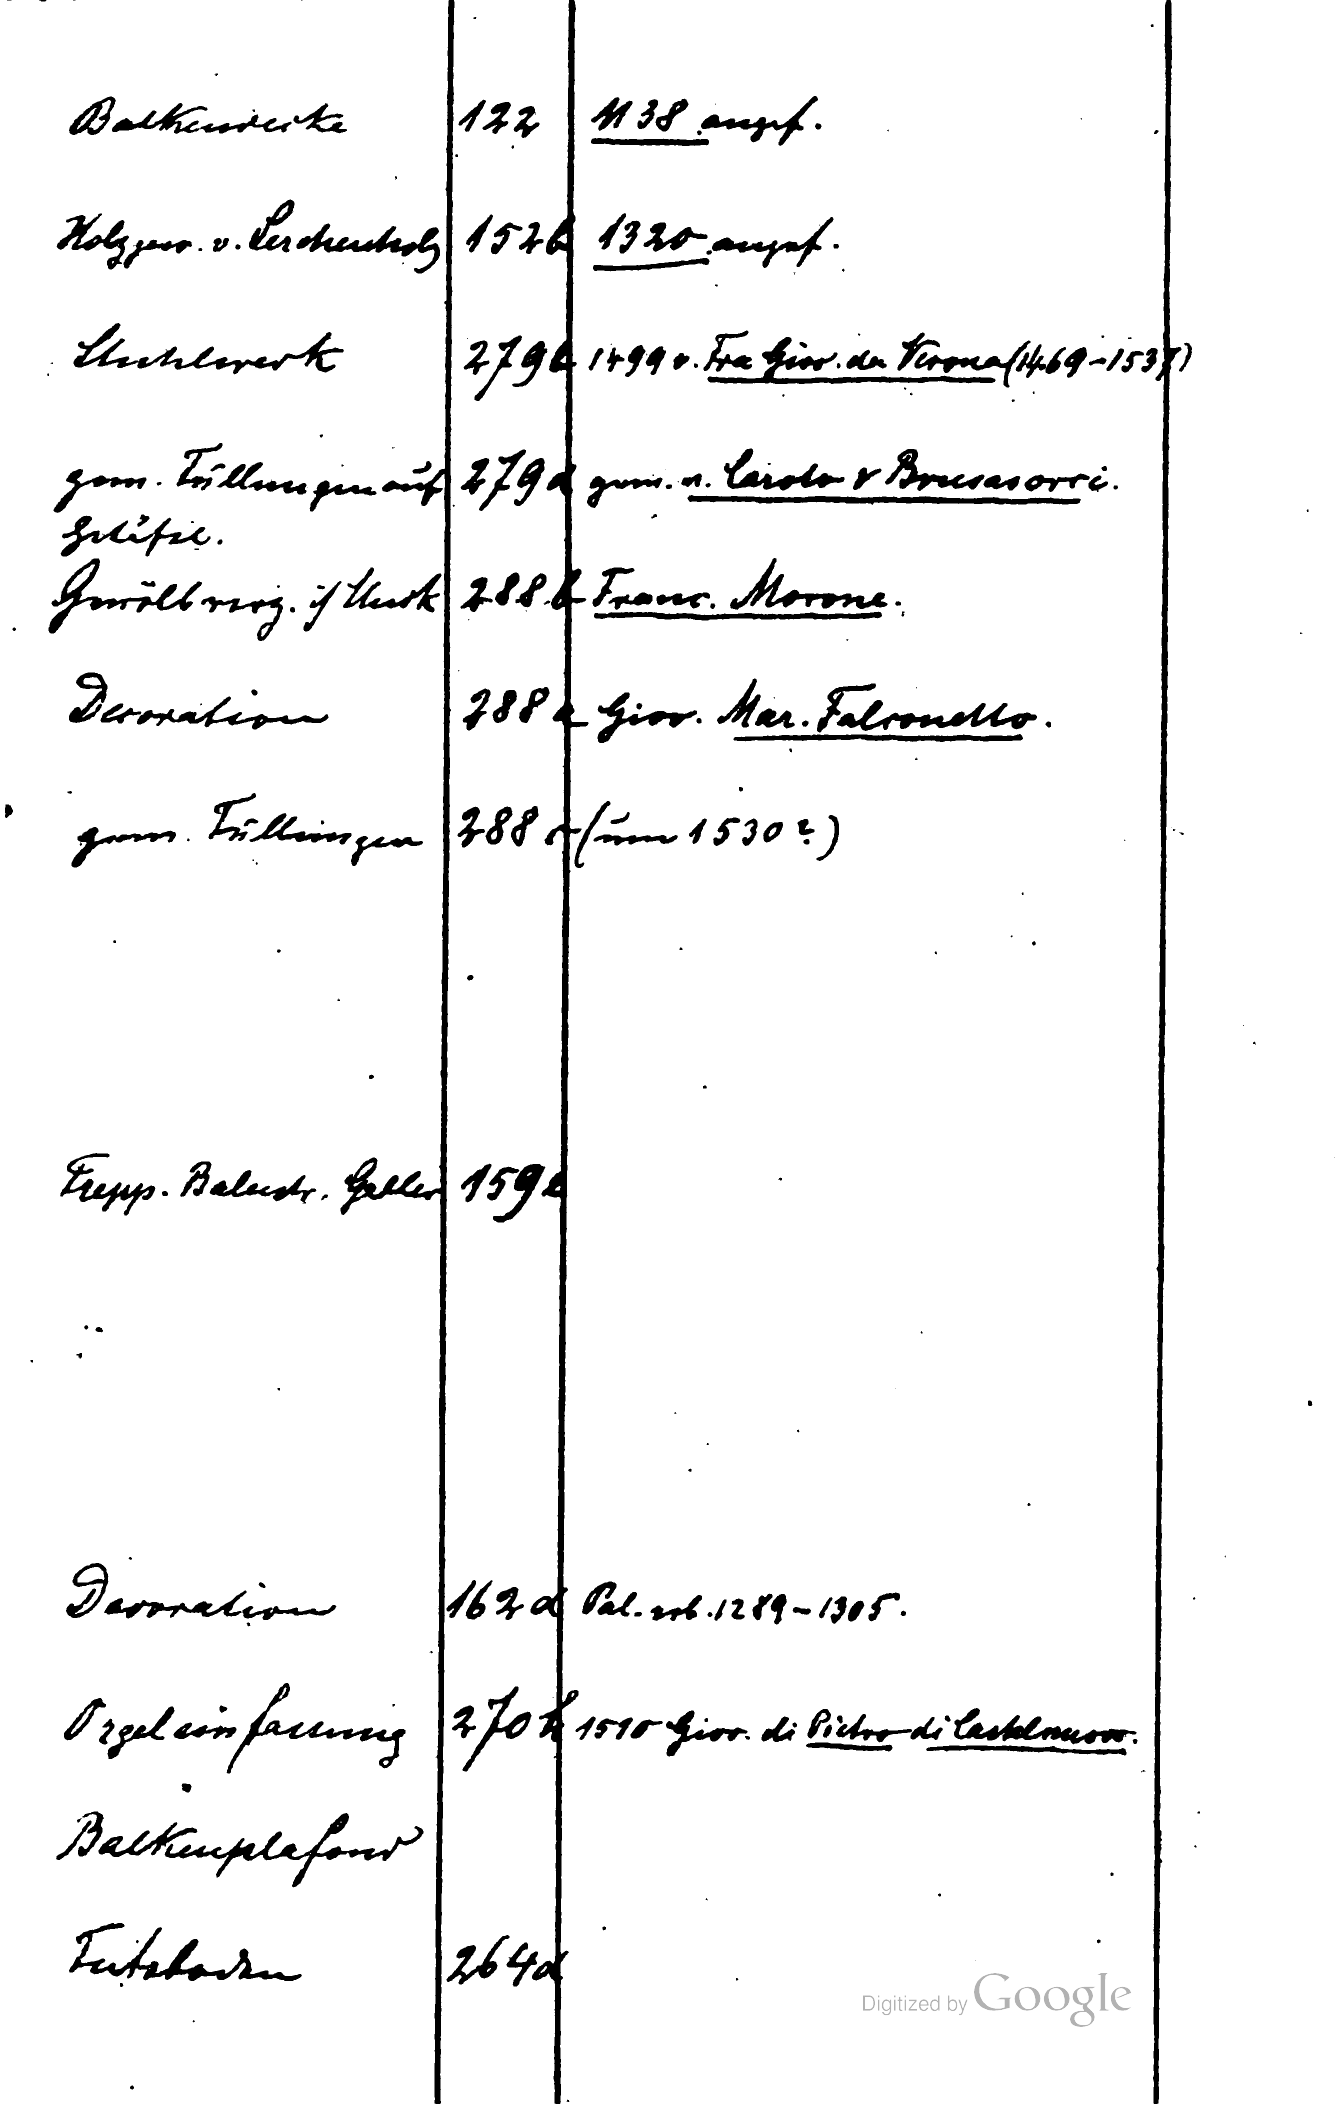 Balkendecke 122 1138 angef.
Holzgew. v. Lerchenholz 152b 1320 angef.
Stuhlwerk 279b 1499 v. Fra Giov. da Verona (1469-1537)
gem. Füllungen auf 279a gem. v. Caroto & Brusasorci.
Getäfel.
Gewölbverz. i/ Stuck 288b Franc. Morone.
Decoration 288a Giov. Mar. Falconetto.
gem. Füllungen 288c (um 1530?)
Trepp. Balustr. Geller 159
Decoration 162d Pal. erb. 1289-1305.
Orgeleinfassung 270h 1510 Giov. di Pietro di Castelnuovo.
Balkenplafond
Fussboden 264d
Digitized by Google